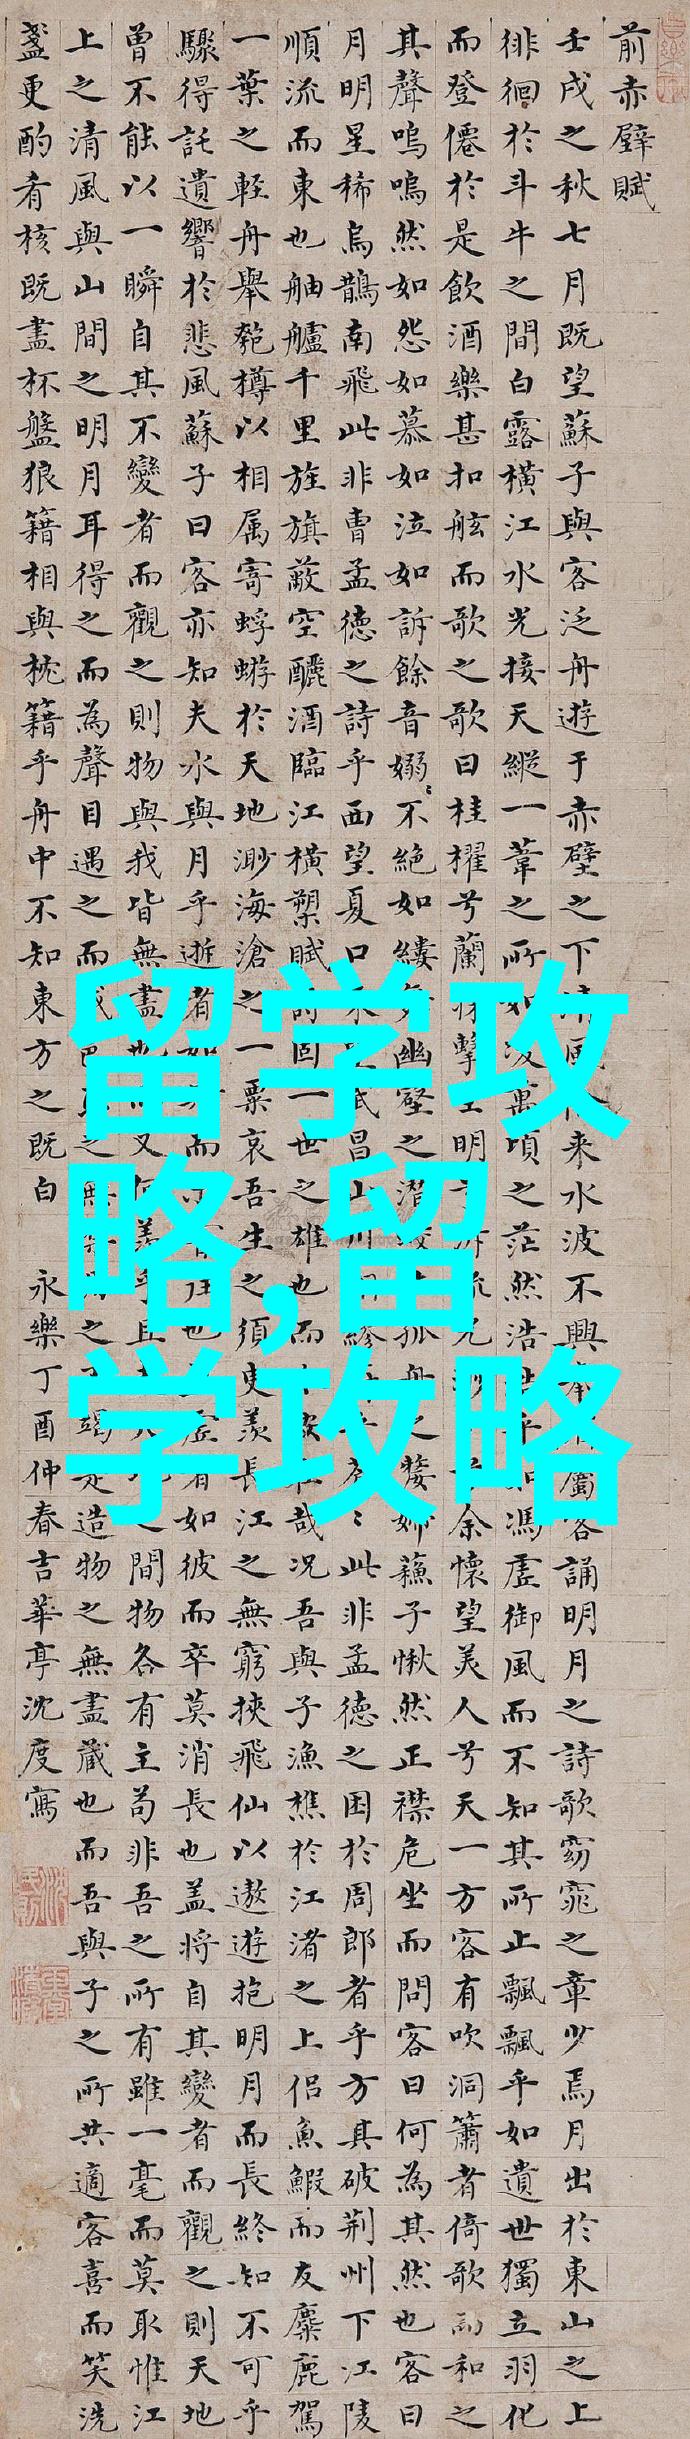 前赤壁賦
壬戌之秋七月既望蘇子與客泛舟遊于赤壁之下清風来水波不興屬客誦明月之詩歌窈窕之章少焉月出於東山之上
徘徊於斗牛之間白露橫江水光接天縱一葦之所如凌萬頃之茫然浩乎馮虛御風而不知其所止飄飄乎如遺世獨立羽化
而登僊於是飲酒樂甚扣舷而歌之歌曰桂櫂兮蘭擊明流余懷望美人兮天一方客有吹洞簫者倚歌而和之
其聲嗚嗚然如怨如慕如泣如訴餘音嫋〻不絕如縷幽壑之潛孤舟之嫠婦蘇子愀然正襟危坐而問客曰何為其然也客曰
月明星稀烏鵲南飛此非曹孟德之詩乎西望夏口武昌山川繆〻此非孟德之困於周郎者乎方其破荊州下江陵
順流而東也舳艫千里旌旗蔽空釃酒臨江橫槊賦詩固一世之雄也而哉況吾與子漁樵於江渚之上侶魚鰕而友麋鹿駕
一葉之輕舟舉匏樽以相属寄蜉蝣於天地渺海滄之一粟哀吾生之須臾羨長江之無窮挾飛仙以遨遊抱明月而長終知不可乎
驟得託遺響於悲風蘇子曰客亦知夫水與月乎逝者而往也虛者如彼而卒莫消長也盖將自其變者而觀之則天地
曾不能以一瞬自其不變者而觀之則物與我皆無盡也又何羨乎且之間物各有主苟非吾之所有雖一毫而莫取惟江
上之清風與山間之明月耳得之而為聲目遇之而成色之無之竭是造物之無盡藏也而吾與子之所共適客喜而笑洗
盞更酌肴核既盡杯盤狼籍相與枕籍乎舟中不知東方之既白
永樂丁酉仲春吉華亭沈度寫
留学攻
略,留
学攻略